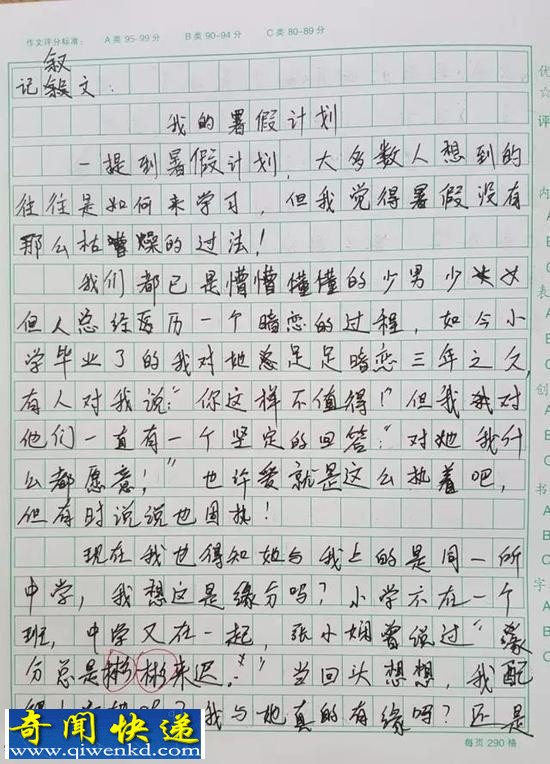 作文评分标准： A类 95-99分 B类 90-94分 C类 80-89分
叙
记 文
我的暑假计划
一提到暑假计划，大多数人想到的
往往是如何来学习，但我觉得暑假没有
那么枯燥的过法！
我们都已是懵懵懂懂的少男少女
但人总经历一个暗恋的过程，如今小
学毕业了的我对她足足暗恋三年之久，
有人对我说：“你这样不值得！”但我对
他们一直有一个坚定的回答：“对她我什
么都愿意！”也许爱就是这么执着吧，
但有时说说也固执！
现在我也得知她与我上的是同一所
中学，我想这是缘分吗？小学不在一个
班，中学又在一起，张小娴曾说过“缘
分总是彬彬来迟。”当回头想想，我配
我与她真的有缘吗？还是
优
☆
评
内
A
B
C
表
A
B
C
创
A
B
C
书
A
B
C
字
A
B
C
奇闻快递
www.qiwenkd.com
每页 290 格